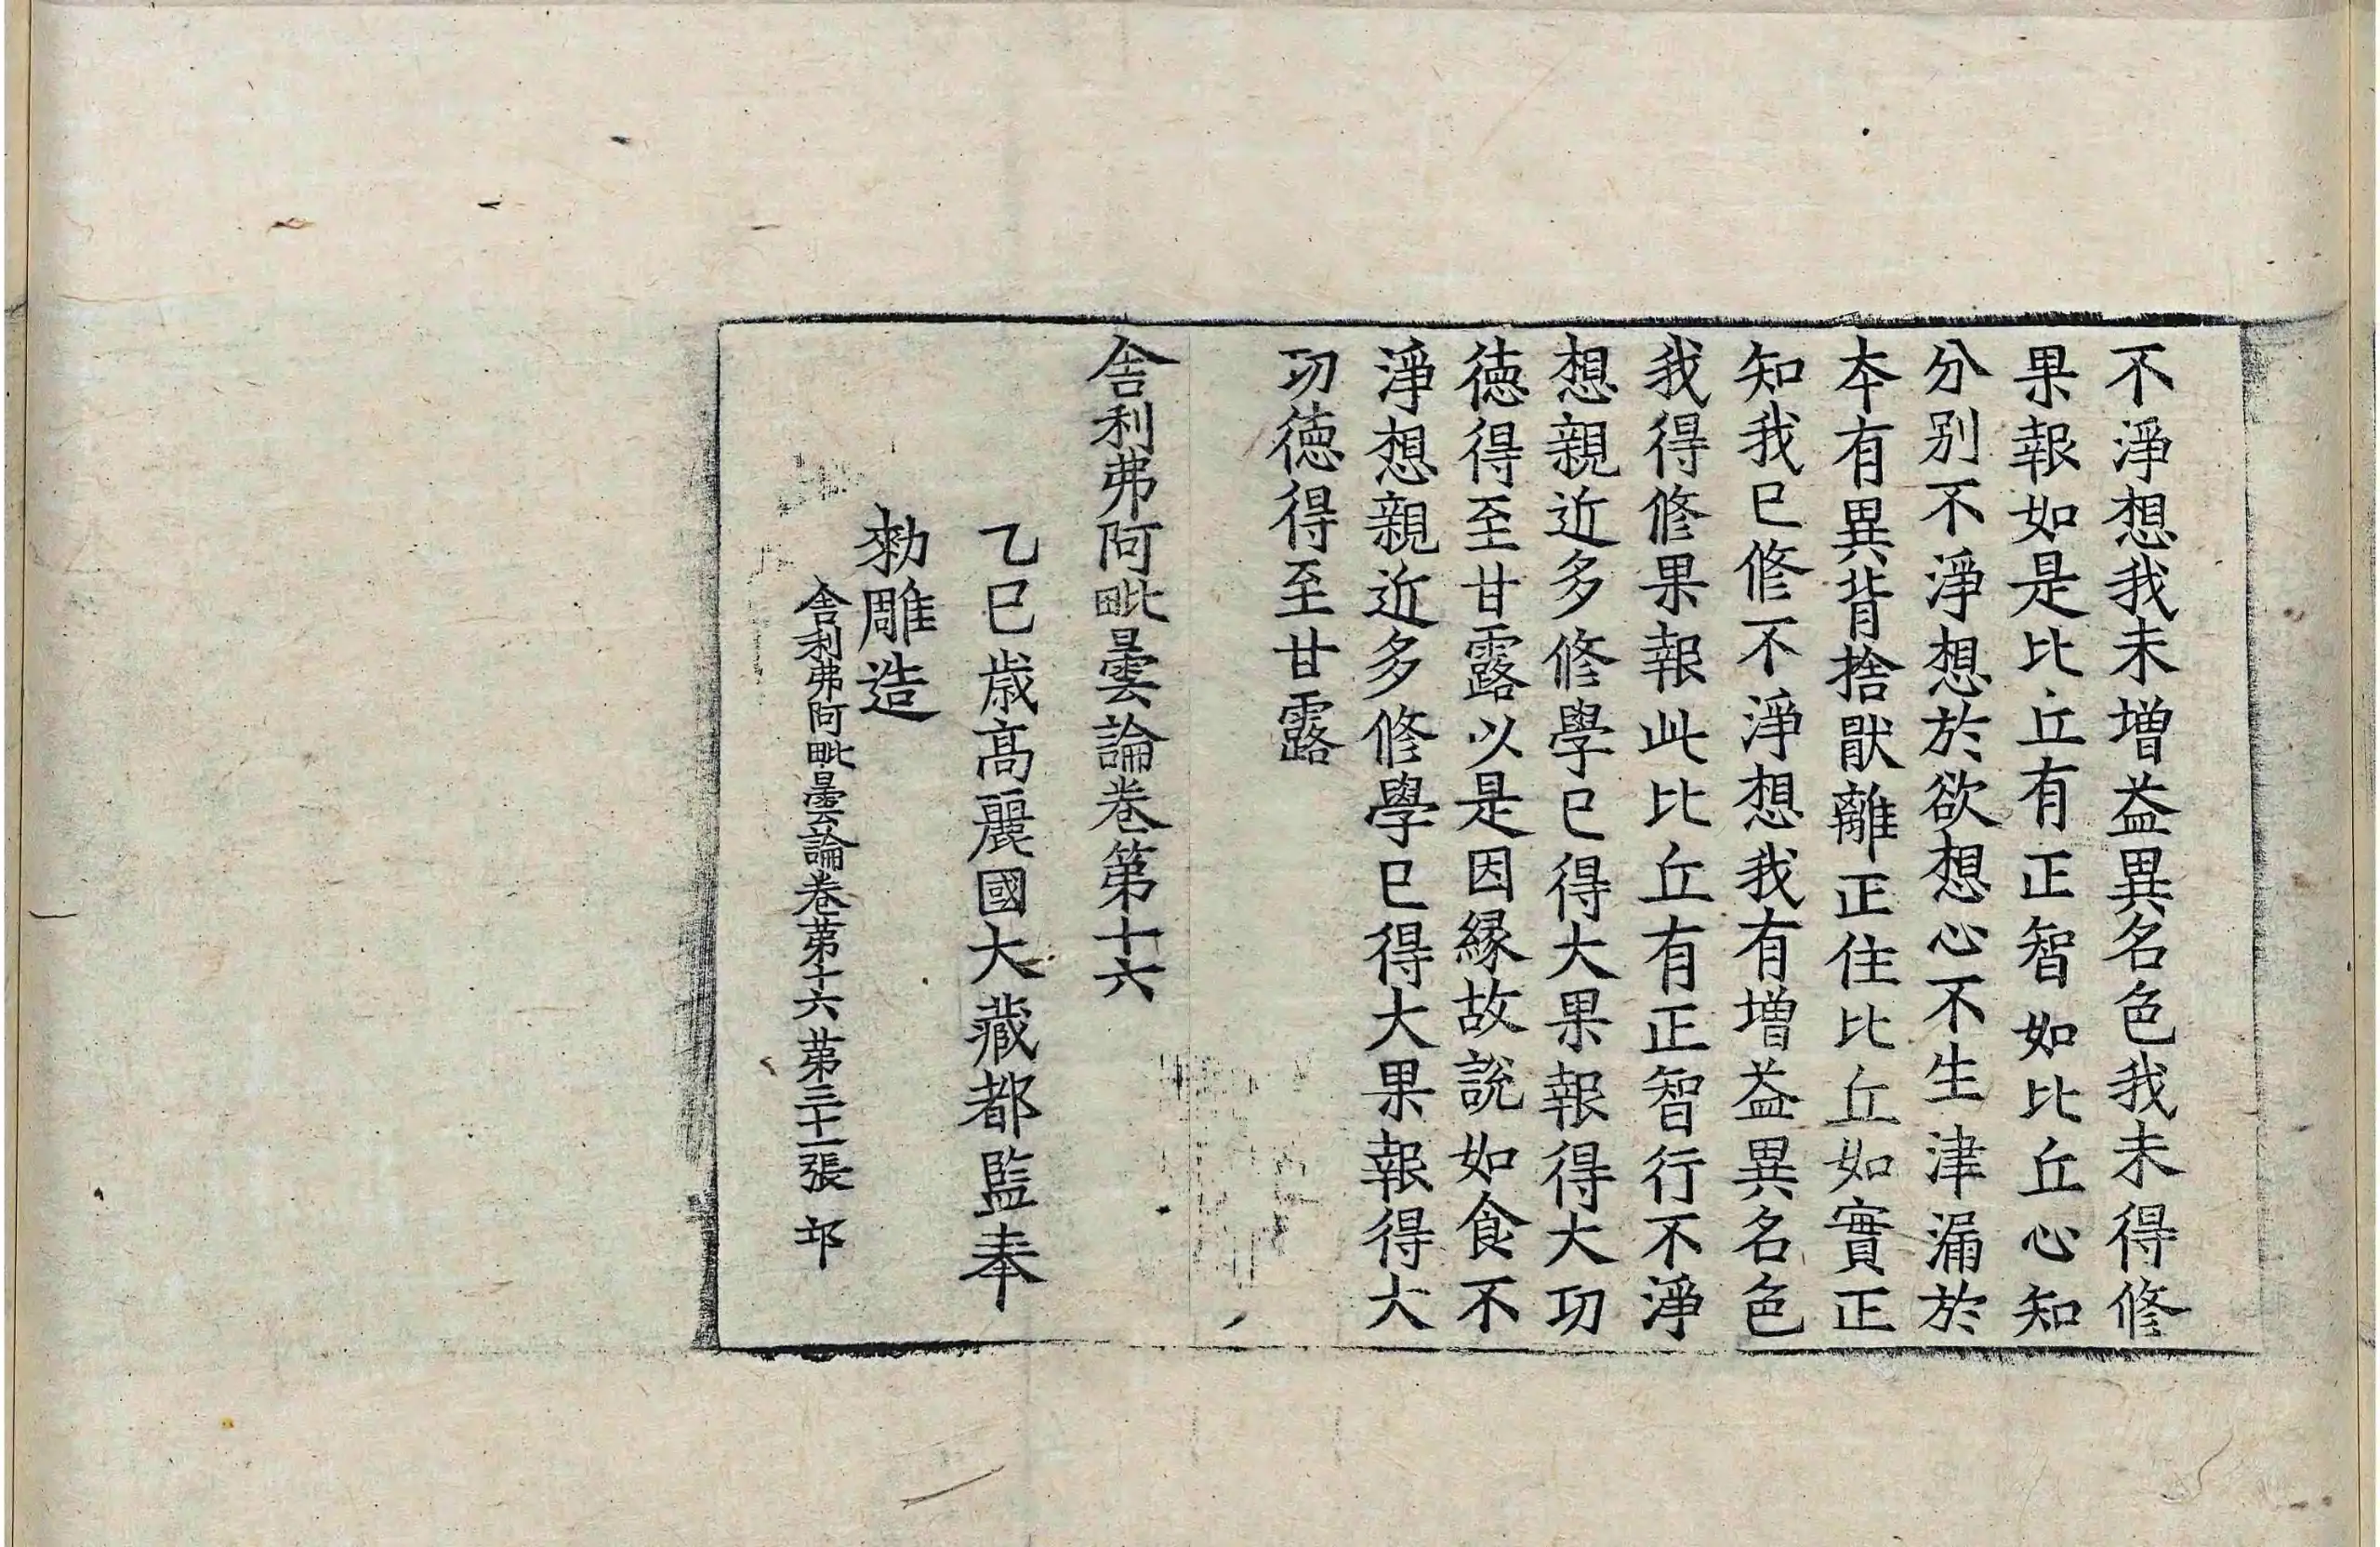 不淨想我未增益異名色我未得修
果報如是比丘有正智如比丘心知
分別不淨想於欲想心不生津漏於
本有異背捨猒離正住比丘如實正
知我已修不淨想我有增益異名色
我得修果報此比丘有正智行不淨
想親近多修學已得大果報得大功
德得至甘露以是因緣故說如食不
淨想親近多修學已得大果報得大
功德得至甘露
舍利弗阿毗曇論卷第十六
乙巳歲高麗國大藏都監奉
勑雕造
舍利弗阿毗曇論卷苐十六 苐三十一張 邙